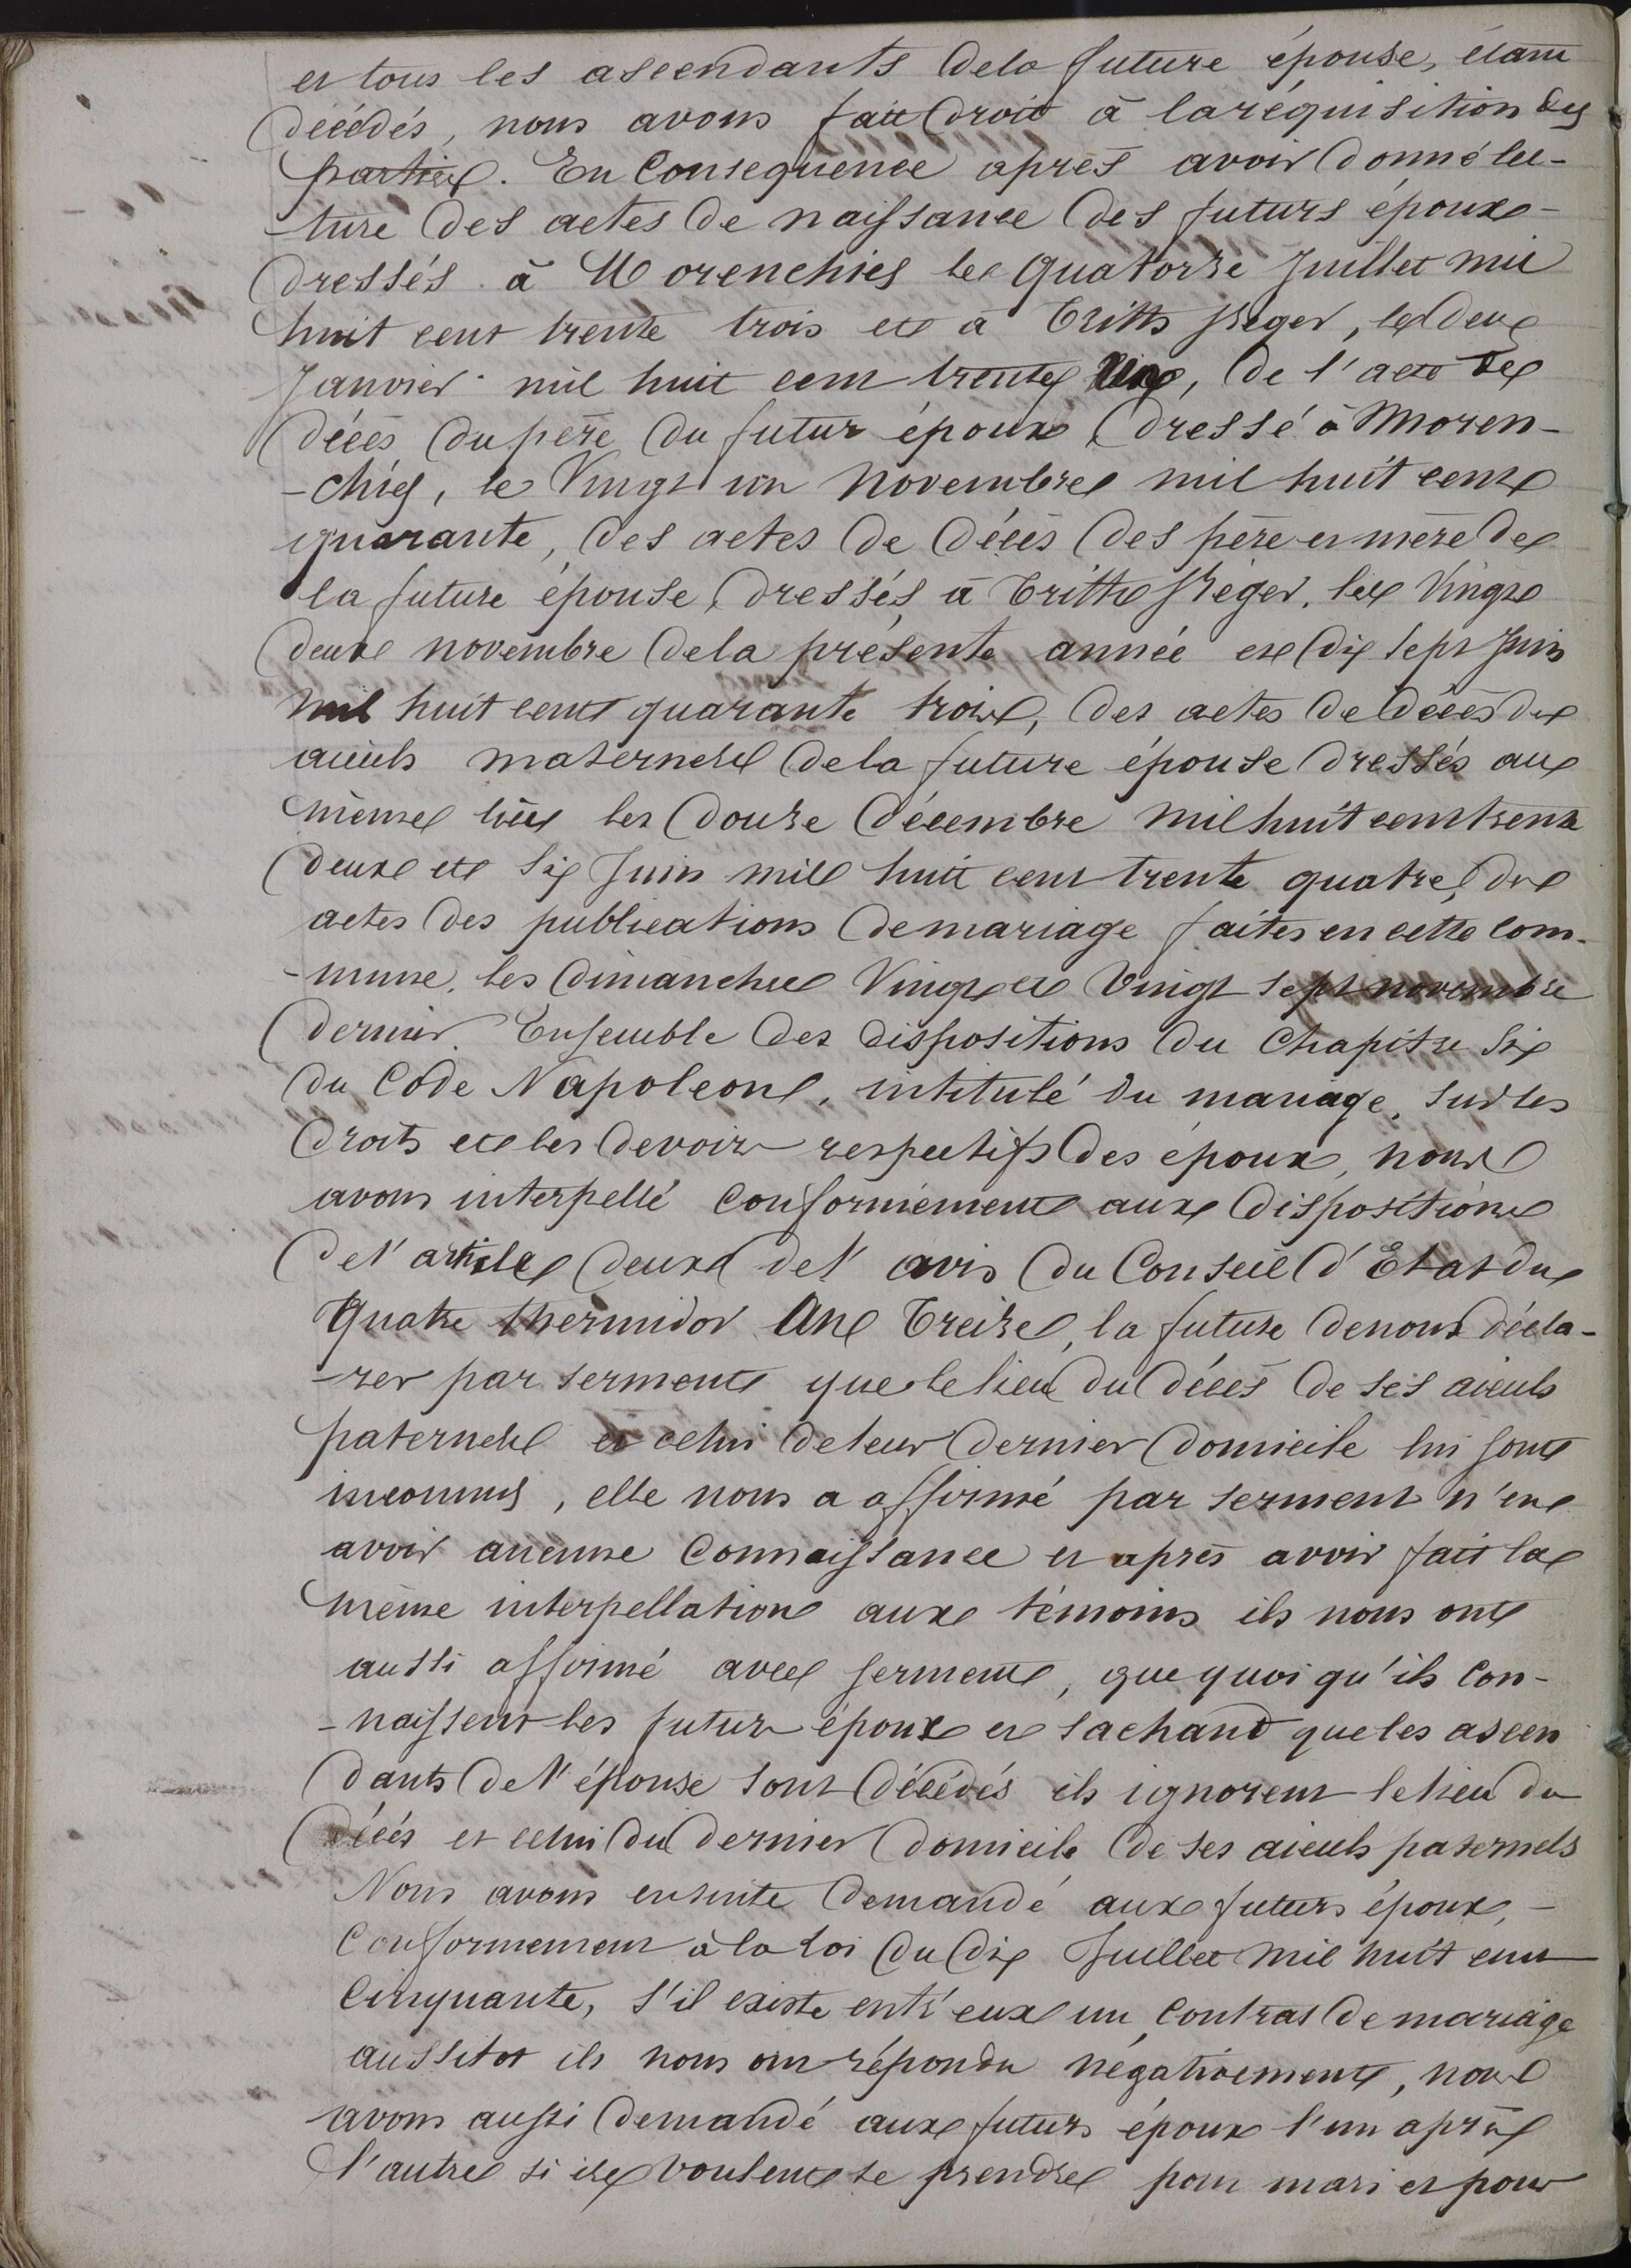 et tous les ascendants dela future épouse, étant
décédés, nous avons fait droit à laréquisition des
parties. En Consequence après avoir donné lec-
-ture des actes de naissance des futurs époux-
dressés à Morenchies le quatorze Juillet mil
huit cent trente trois et à Critts Séger, le deux
Janvier mil huit cent trente un, de l'acte de
décès du père du futur époux dressé à Moren-
-chies, le Vingt un novembre mil huit cent
quarante, des actes de décès des père et mère de
la future épouse, dressés à Critts Séger, les Vingt
deux novembre dela présente année et dix sept Juin
mil huit cent quarante trois, des actes de décès des
aieuls maternels dela future épouse dressés au
même lieu les douze décembre mil huit cent trente
deux et six Juin mil huit cent trente quatre, des
actes des publications demariage faites en cette com-
-mune, les dimanches Vingt et Vingt sept novembre
dernier. Ensemble des dispositions du Chapitre six
du Code Napoleon, intitulé du mariage, sur les
droits et les devoirs respectifs des époux, nous
avons interpellé Conformément aux dispositions
del'article deux del'avis du Conseil d'Etat du
Quatre thermidor An Treize, la future denous décla-
-rer par serment que le lieu du décès de ses aieuls
paternels et celui deleur dernier domicile lui sont
inconnus, elle nous a affirmé par serment n'en
avoir aucune Connaissance et après avoir fait la
même interpellation aux témoins ils nous ont
aussi affirmé avec serment, que quoi qu'ils Con-
-naissent les futurs époux et sachant que les ascen
dants del'épouse sont décédés ils ignorent le lieu du
décès et celui du dernier domicile de ses aieuls paternels
Nous avons ensuite demandé aux futurs époux,-
Conformement à la Loi du dix Juillet mil huit cent
Cinquante, s'il existe entr'eux un Contrat de mariage
aussitot ils nous ont répondu négativement, nous
avons aussi demandé aux futurs époux l'un après
l'autre si ils voulent se prendre pour mari et pour